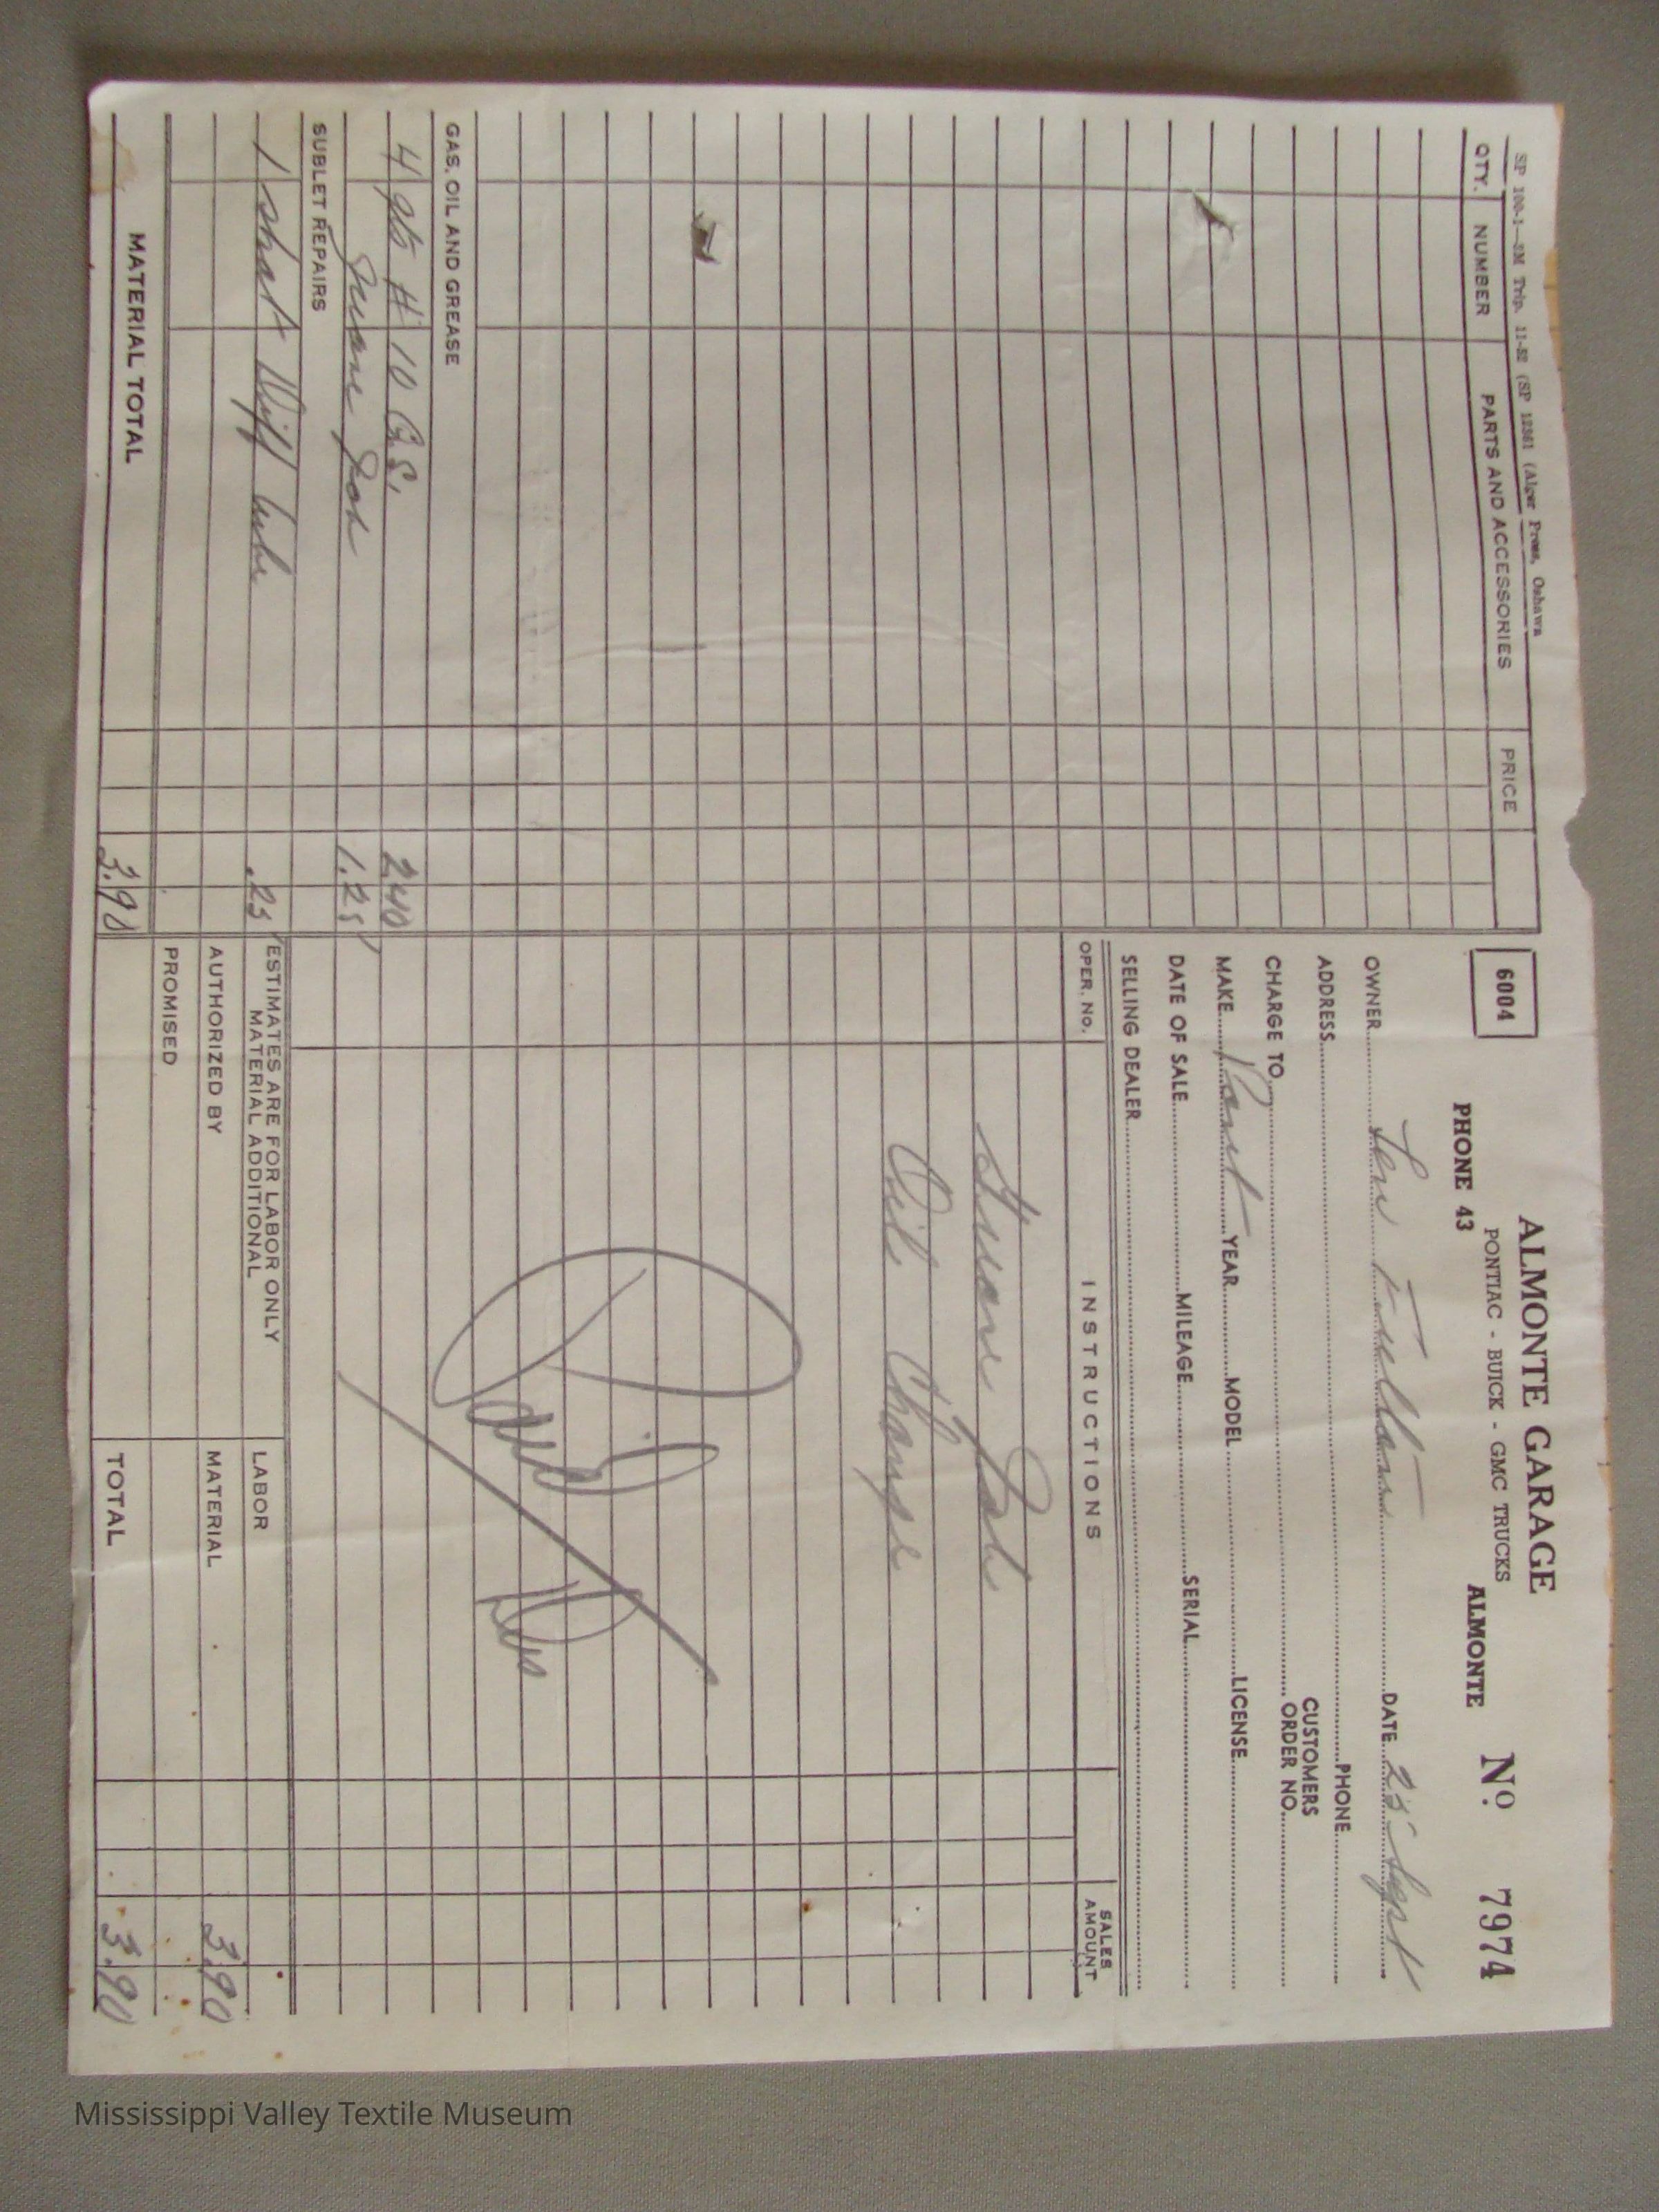 SP 100-1—3M Trip. 11-52 (SP 12361 (Alger Press, Oshawa
QTY. NUMBER PARTS AND ACCESSORIES PRICE
GAS, OIL AND GREASE
4 qts # 10 G.S. 2.40
Grease Job 1.25
SUBLET REPAIRS
1 shot Diff lube .25
MATERIAL TOTAL 3.90
6004
ALMONTE GARAGE
PONTIAC - BUICK - GMC TRUCKS
PHONE 43 ALMONTE
No. 7974
OWNER Len Fulton DATE 25 Sept
ADDRESS PHONE
CHARGE TO CUSTOMERS ORDER NO.
MAKE Pont YEAR MODEL LICENSE
DATE OF SALE MILEAGE SERIAL
SELLING DEALER
OPER. No. INSTRUCTIONS SALES AMOUNT
Grease Job
Oil Change
ESTIMATES ARE FOR LABOR ONLY
MATERIAL ADDITIONAL
LABOR
AUTHORIZED BY MATERIAL 3.90
PROMISED
TOTAL 3.90
Mississippi Valley Textile Museum